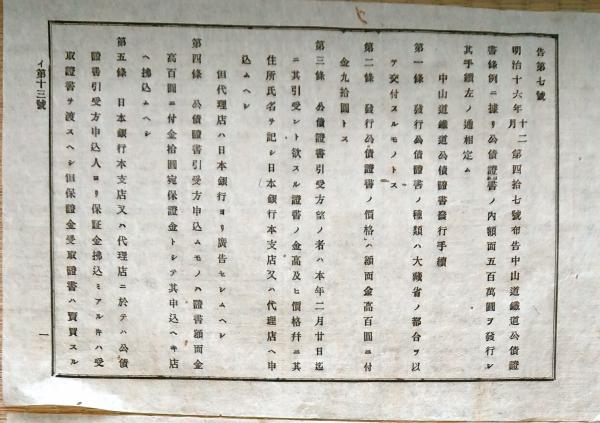 告第七號
明治十六年十二月第四拾七號布告中山道鐵道公債證
書條例ニ據リ公債證書ノ內額面五百萬圓ヲ發行シ
其手續左ノ通相定ム
中山道鐵道公債證書發行手續
第一條 發行公債證書ノ種類ハ大藏省ノ都合ヲ以
テ交付スルモノトス
第二條 發行公債證書ノ價格ハ額面金高百圓ニ付
金九拾圓トス
第三條 公債證書引受方望ノ者ハ本年二月廿日迄
ニ其引受ント欲スル證書ノ金高及ヒ價格幷ニ其
住所氏名ヲ記シ日本銀行本支店又ハ代理店ヘ申
込ムヘシ
但代理店ハ日本銀行ヨリ廣告セシムヘシ
第四條 公債證書引受方申込ムモノハ證書額面金
高百圓ニ付金拾圓宛保證金トシテ其申込ヘキ店
ヘ拂込ムヘシ
第五條 日本銀行本支店又ハ代理店ニ於テハ公債
證書引受方申込人ヨリ保証金拂込ミアルキハ受
取證書ヲ渡スヘシ但保證金受取證書ハ賣買スル
イ第十三號
一